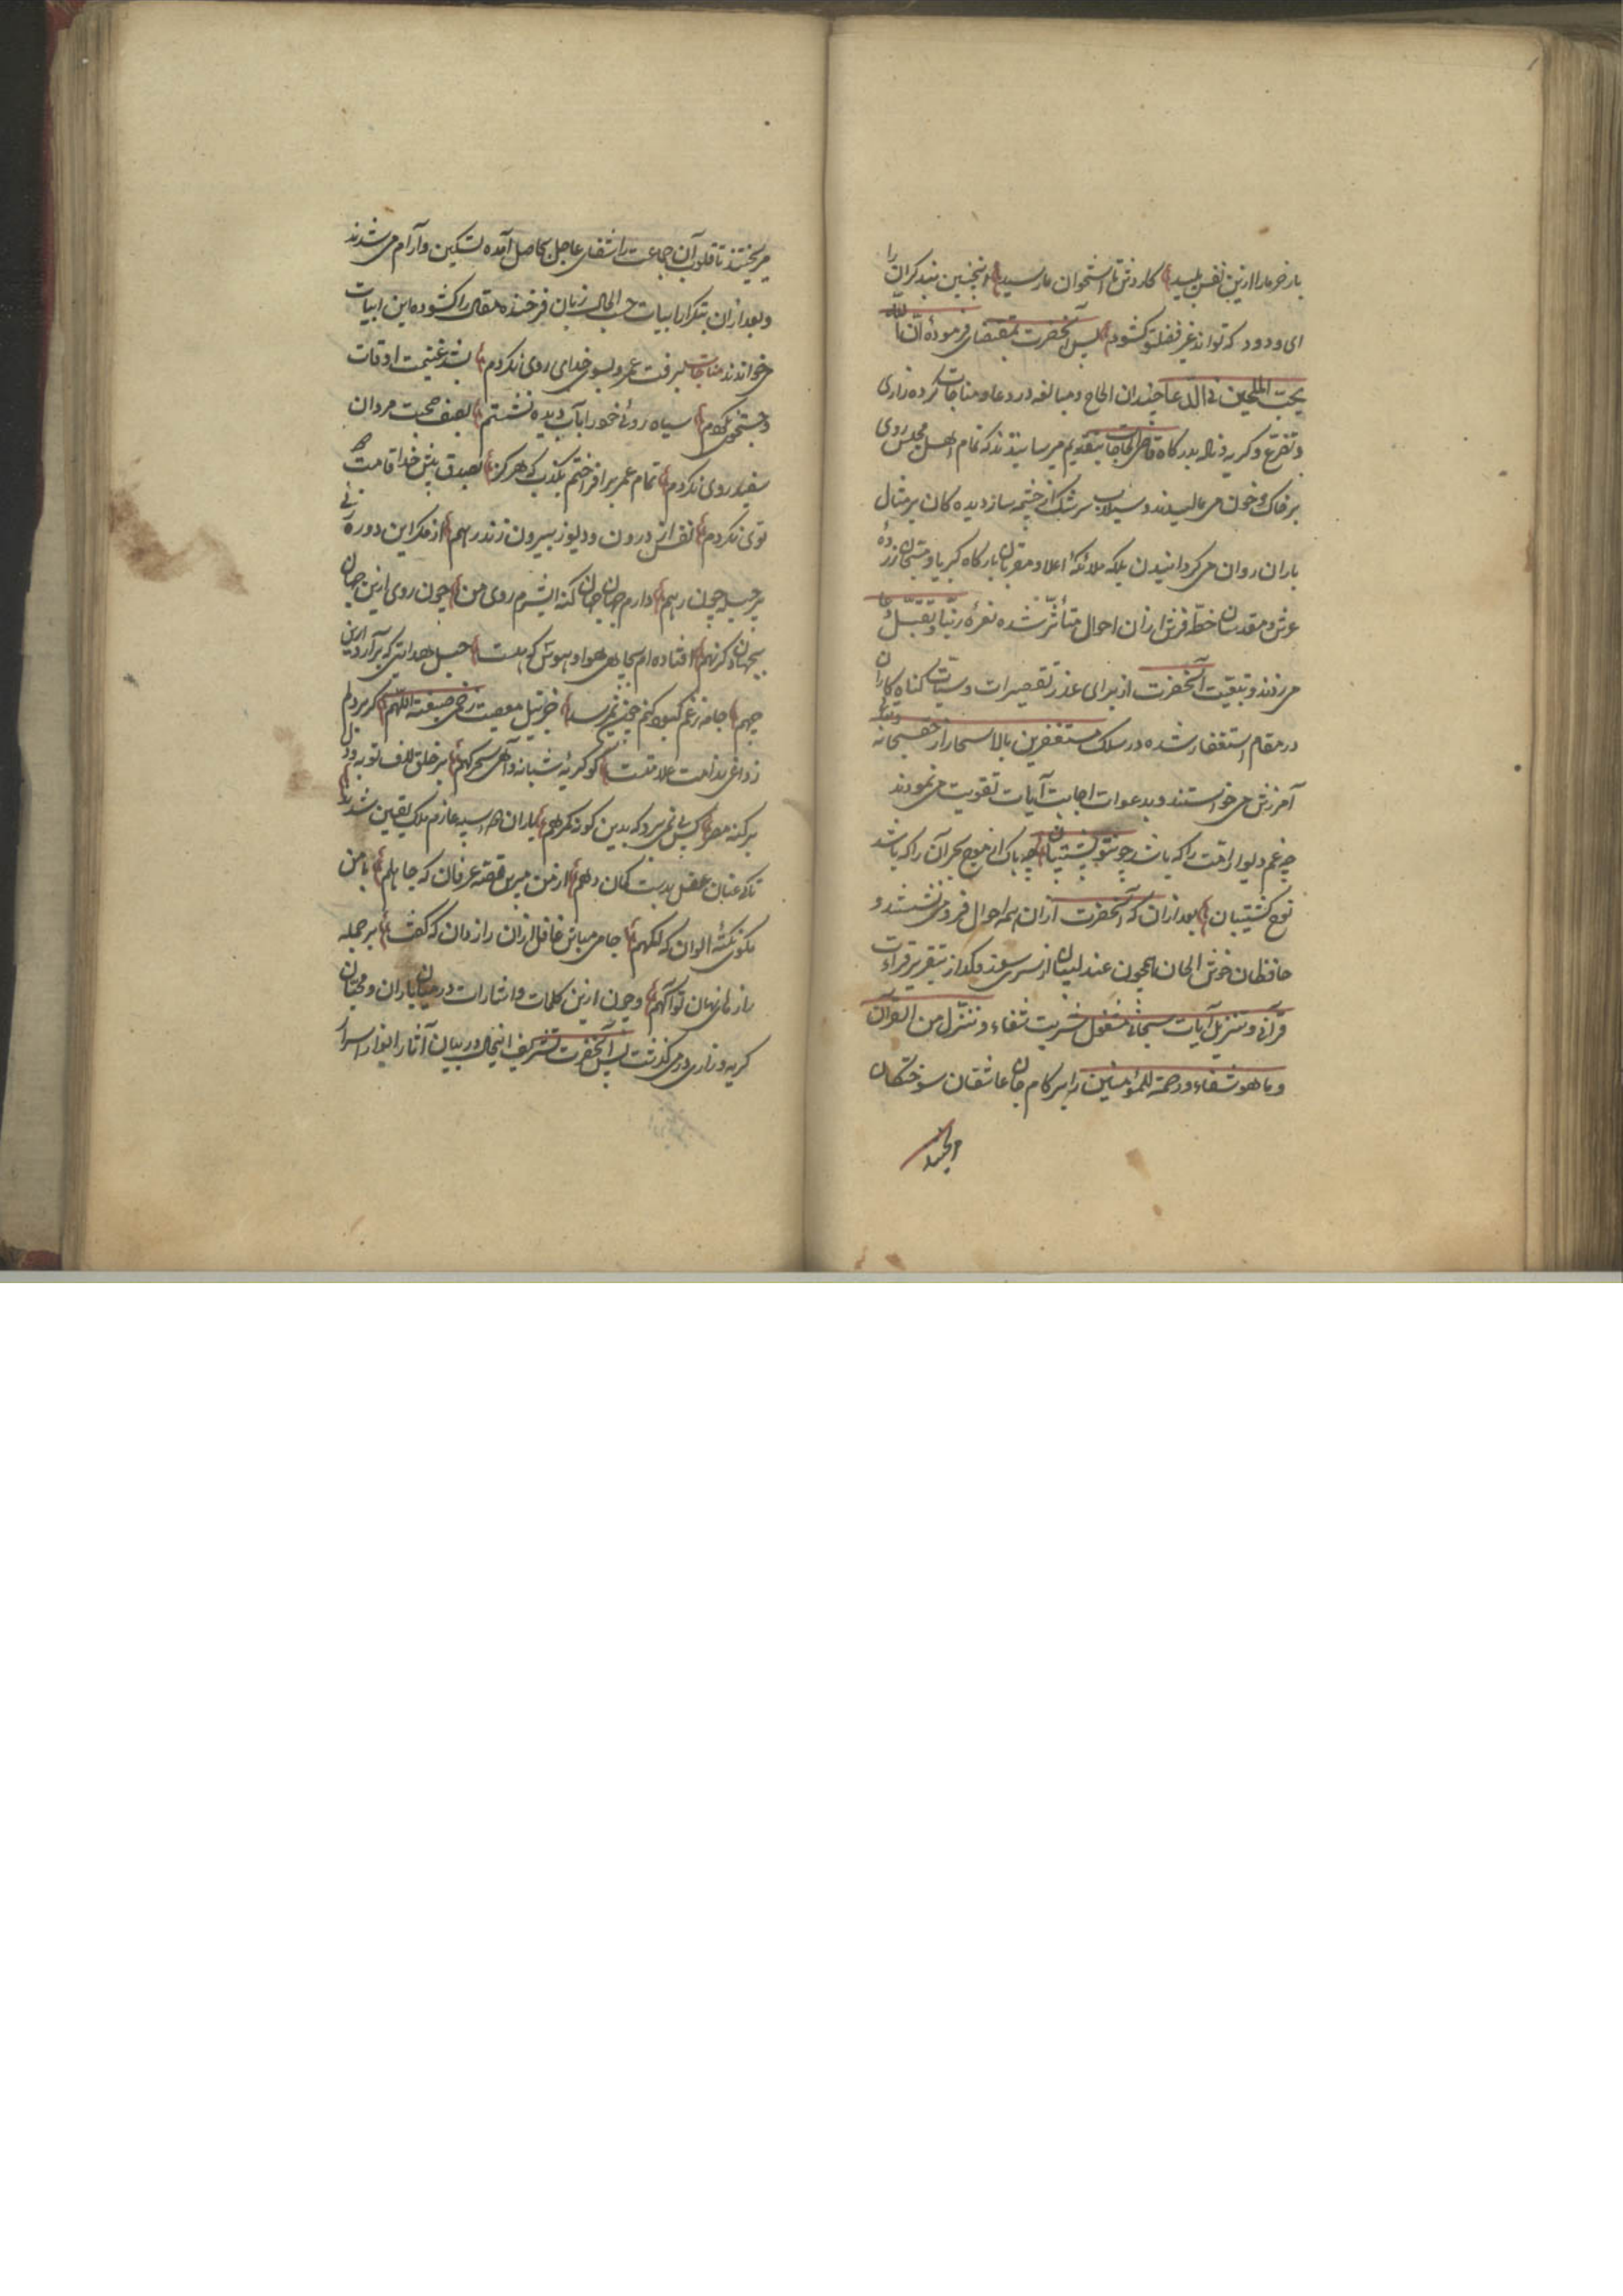 باز خر ما را ازین نفس پلید کاردش تا استخوان ما رسید اینچنین بند گران را
ای ودود که تواند غیر فضلت کشود پس آنحضرت بمقتضای فرموده ان الله
یحب الملحین فی الدعا چندان الحاح و مبالغه در دعا و مناجات کرده زاری
و تضرع و کریه و ناله بدرکاه قاضی الحاجات بتقدیم میرسانیدند که تمام اهل مجلس روی
بر خاک و خون می مالیدند و سیلاب سرشک از چشمه سار دیده کان بر مثال
باران روان می کردانیدن بلکه ملائکهٔ اعلا و مقربان بارکاه کبریا و
عرش و مقدسان خطه فرش ازان احوال متأثر شده نعرهٔ ربنا و تقبل دعا
می زدند و تبعیت آنحضرت از برای عذر تقصیرات و سیئات کناه کاران
در مقام استغفار شده در سلک مستغفرین بالاسحار از حق سبحانه و تعالی
آمرزش می خواستند و بدعوات اجابت آیات تقویت می نمودند
چه غم دیوار امت را که باشد چون تو پشتیبان چه باک از موج بحر آن را که باشد
نوح کشتیبان بعد ازان که آنحضرت ازان همه احوال فرو می نشستند و
حافظان خوش الحان همچون عندلیبان از سر سوز و کداز بتقریر قراءت
قرآنی و تنزیل آیات سبحانی مشغول شربت شفاء و ننزل من القرآن
و ما هو شفاء و رحمة للمؤمنین را بر کام جان عاشقان سوختکان
می ریختند تا قلوب آن جماعت را شفای عاجل حاصل آمده تسکین و آرام می شدند
و بعد ازان بتکرار ابیات حسب الحال زبان فرخنده مقال را کشوده این ابیات
می خواندند مناجات برفت عمر و بسوی خدای روی نکردم بشد غنیمت اوقات
و جستجوی نکردم سیاه رویی خود را بآب دیده نشستم بصف صحبت مردان
سفید روی نکردم تمام عمر برافراختم بکذب که هرکز بصدق پیش خدا قامت
توی نکردم نفس از درون و دیو ز بیرون زند رهم از مکر این دو رهزن
پر حیله چون رهم دارم جهان جهان کنه ای شرم روی من چون روی ازین جهان
بجهان دکر نهم افتاده ام بچاه هوا و هوس کجاست حبل هدایتی که برآرد ازین
چهم جامه ز غم کبود کنم چون نمی رسد جز نیل معصیت ز خم صبغة اللهم کر بر دلم
ز داغ ندامت علامتست کو کریهٔ شبانه و آه سحرکهم بر خلق لاف توبه و دل
بر کنه مصر کس پی نمی برد که بدین کونه کمرهم یاران همه رسیده عازم ملک یقین شدند
تا کی عنان عقل بدست کمان دهم از من مپرس قصهٔ عرفان که جاهلم با من
مکوی نکتهٔ الوان که اکمهم جامی مباش غافل ازان رازدان که کفت بر جمله
رازهای نهان تو آکهم و چون ازین کلمات و اشارات در میان یاران و محبان
کریه و زاری در می کذشت پس آنحضرت تشریف در بیان آثار انوار اسرار